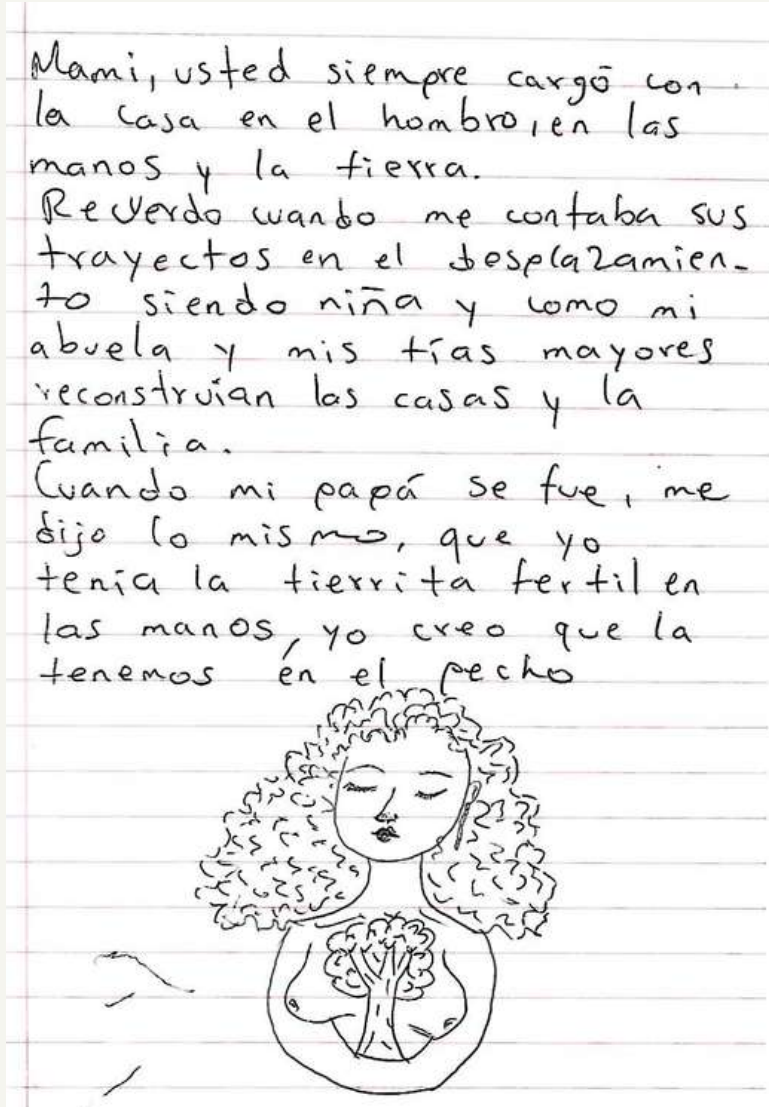 Mami, usted siempre cargó con
la casa en el hombro, en las
manos y la tierra.
Recuerdo cuando me contaba sus
trayectos en el desplazamien-
to siendo niña y como mi
abuela y mis tías mayores
reconstruian las casas y la
familia.
Cuando mi papá se fue, me
dijo lo mismo, que yo
tenia la tierrita fertil en
las manos, yo creo que la
tenemos en el pecho